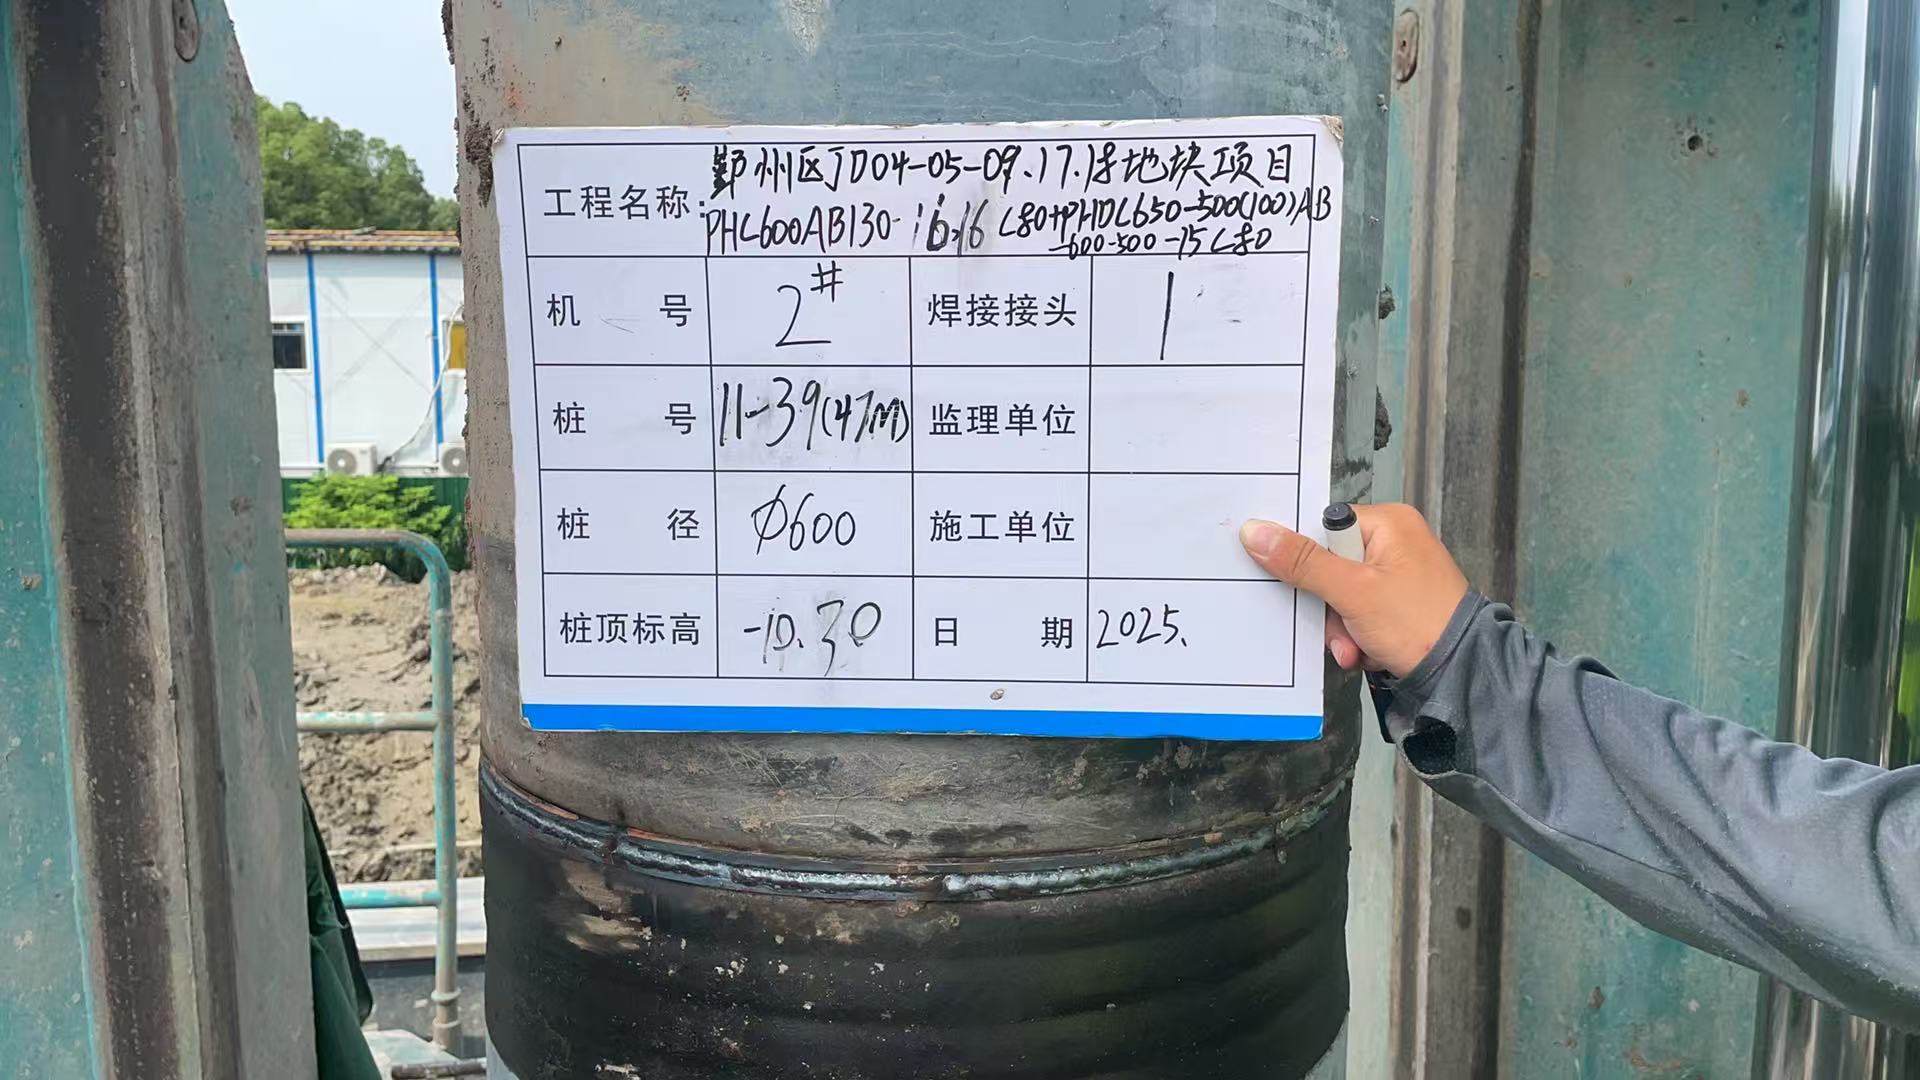 工程名称: 鄞州区JD04-05-09.17.18地块项目
PHC600AB130-16.16 C80+PHDC650-500(100)AB
-600-500-15 C80
机 号 2# 焊接接头 1
桩 号 11-39(47M) 监理单位
桩 径 Φ600 施工单位
桩顶标高 -10.30 日 期 2025.